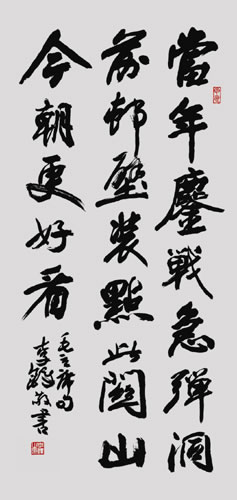 當年鏖戰急彈洞
前邨壁裝點此關山
今朝更好看
毛主席句
李 書